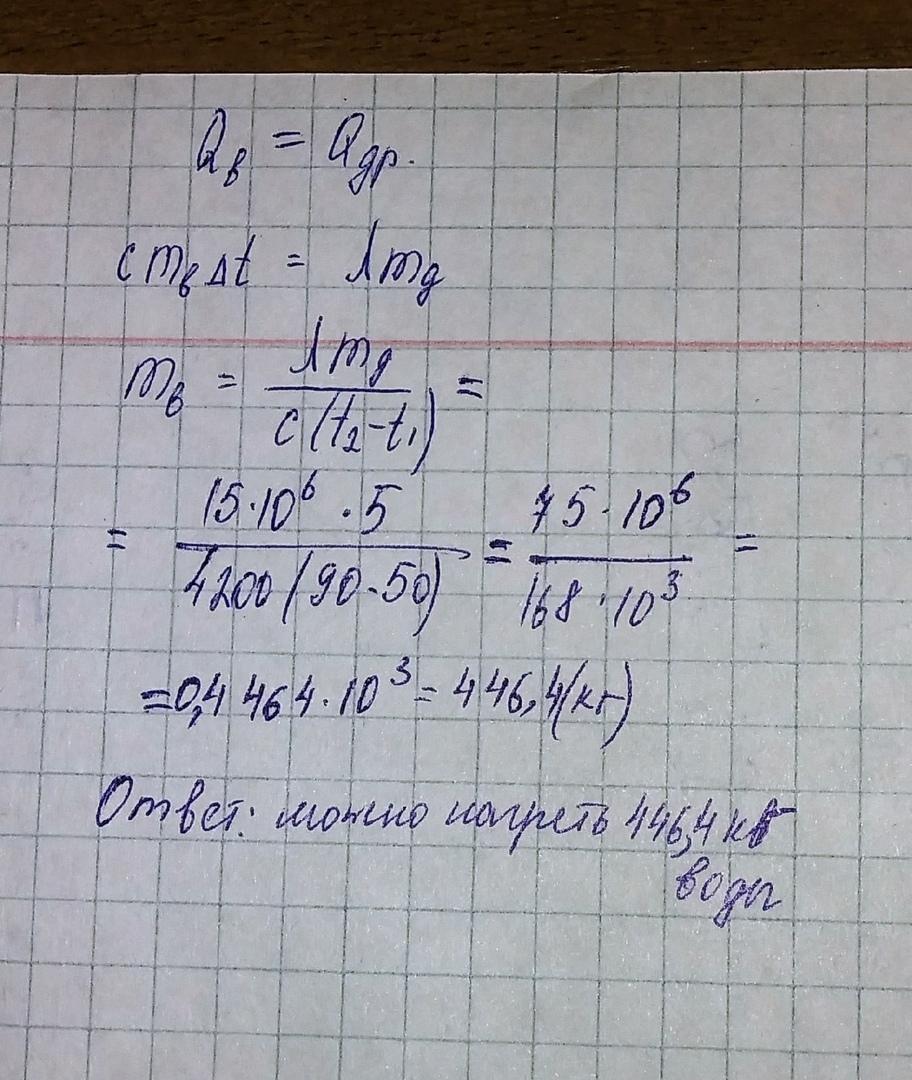 Qв = Qдр.
cmвΔt = λmд
mв = λmд / c(t₂-t₁) =
= 15·10⁶ ·5 / 4200(90-50) = 75·10⁶ / 168·10³ =
=0,4464·10³ = 446,4(кг)
Ответ: можно нагреть 446,4 кг
воды